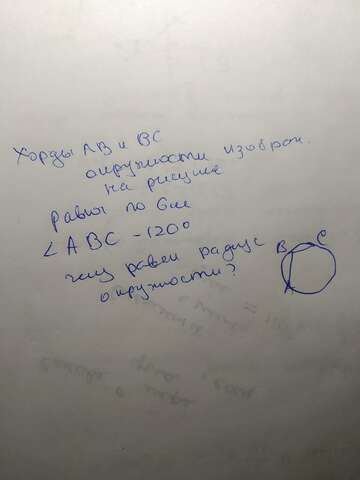 Хорды AB и BC
окружности изображ.
на рисунке
равны по 6 см
∠ABC - 120°
чему равен радиус
окружности?
B
C
A